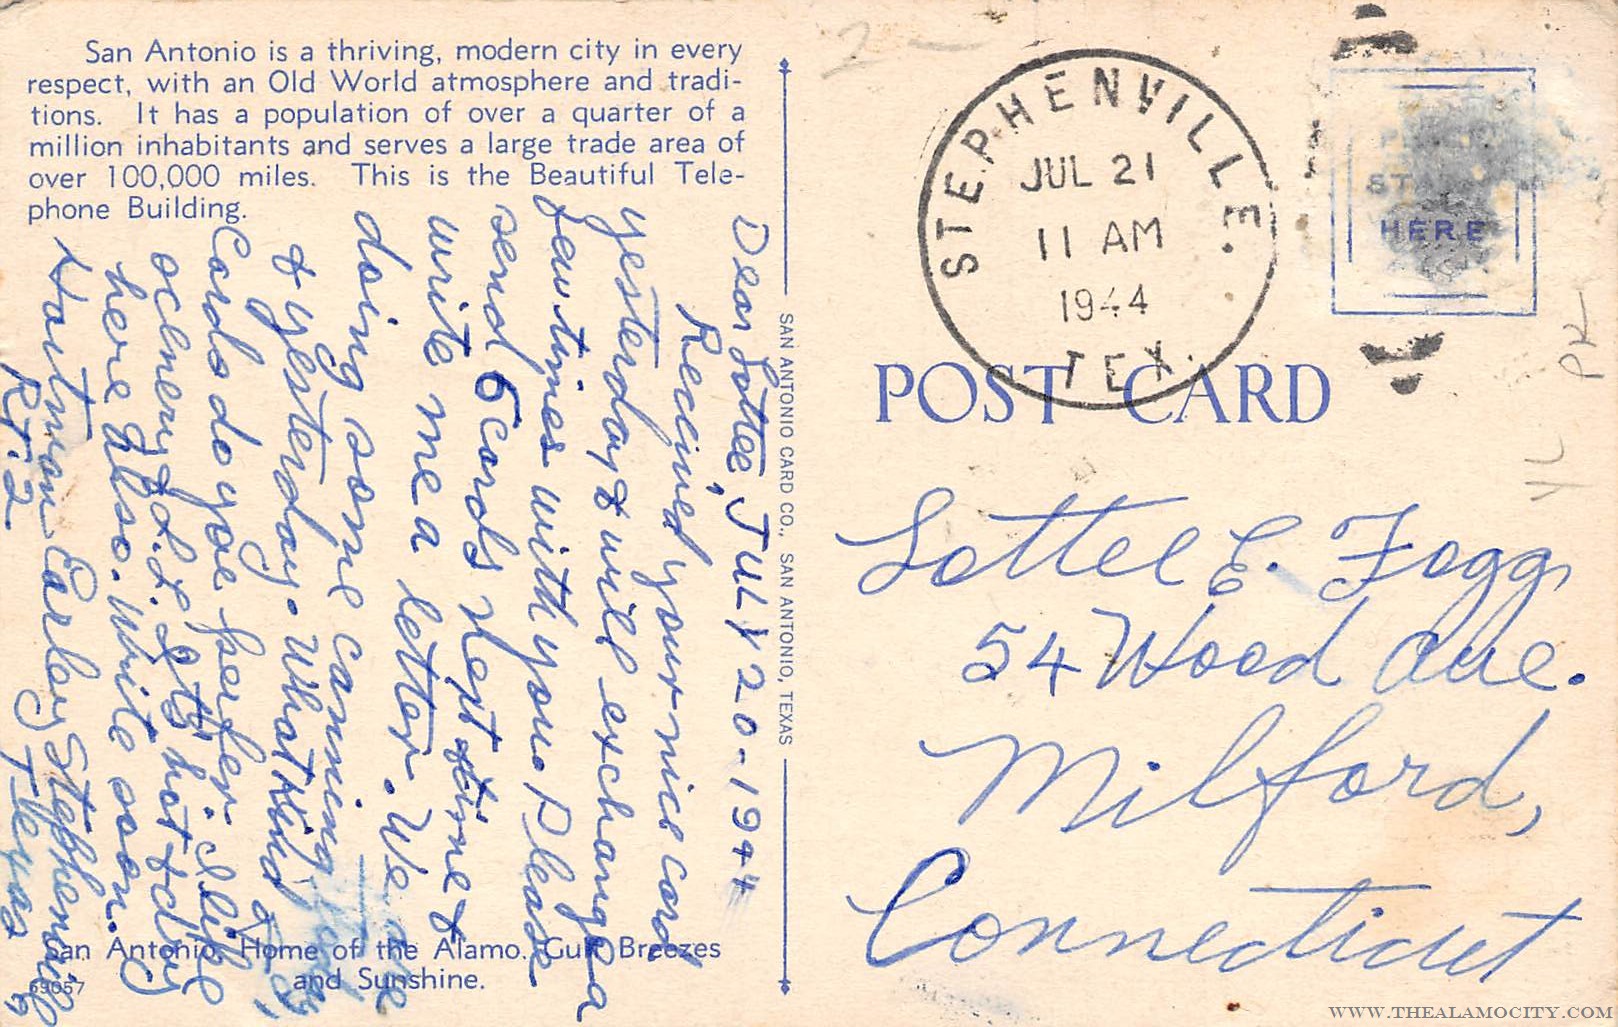 San Antonio is a thriving, modern city in every
respect, with an Old World atmosphere and tradi-
tions. It has a population of over a quarter of a
million inhabitants and serves a large trade area of
over 100,000 miles. This is the Beautiful Tele-
phone Building.
Dear Lottee, JULY 20-1944
Recieved your nice card
yesterday & will exchange a
few times with you. Please
send 6 cards next time &
write me a letter. We are
doing some canning
& yesterday. What kind
Cards do you perfer. I like
ocenery & L.L. Its hot & dry
here also. Write soon.
Hartman Earley Stephenville
Rt. 2 Texas
San Antonio, Home of the Alamo. Gulf Breezes
and Sunshine.
69057
SAN ANTONIO CARD CO., SAN ANTONIO, TEXAS
2
STEPHENVILLE.
JUL 21
11 AM
1944
TEX.
PLACE
STAMP
HERE
POST CARD
Lottee E. Fogg,
54 Wood Ave.
Milford,
Connecticut
WWW.THEALAMOCITY.COM